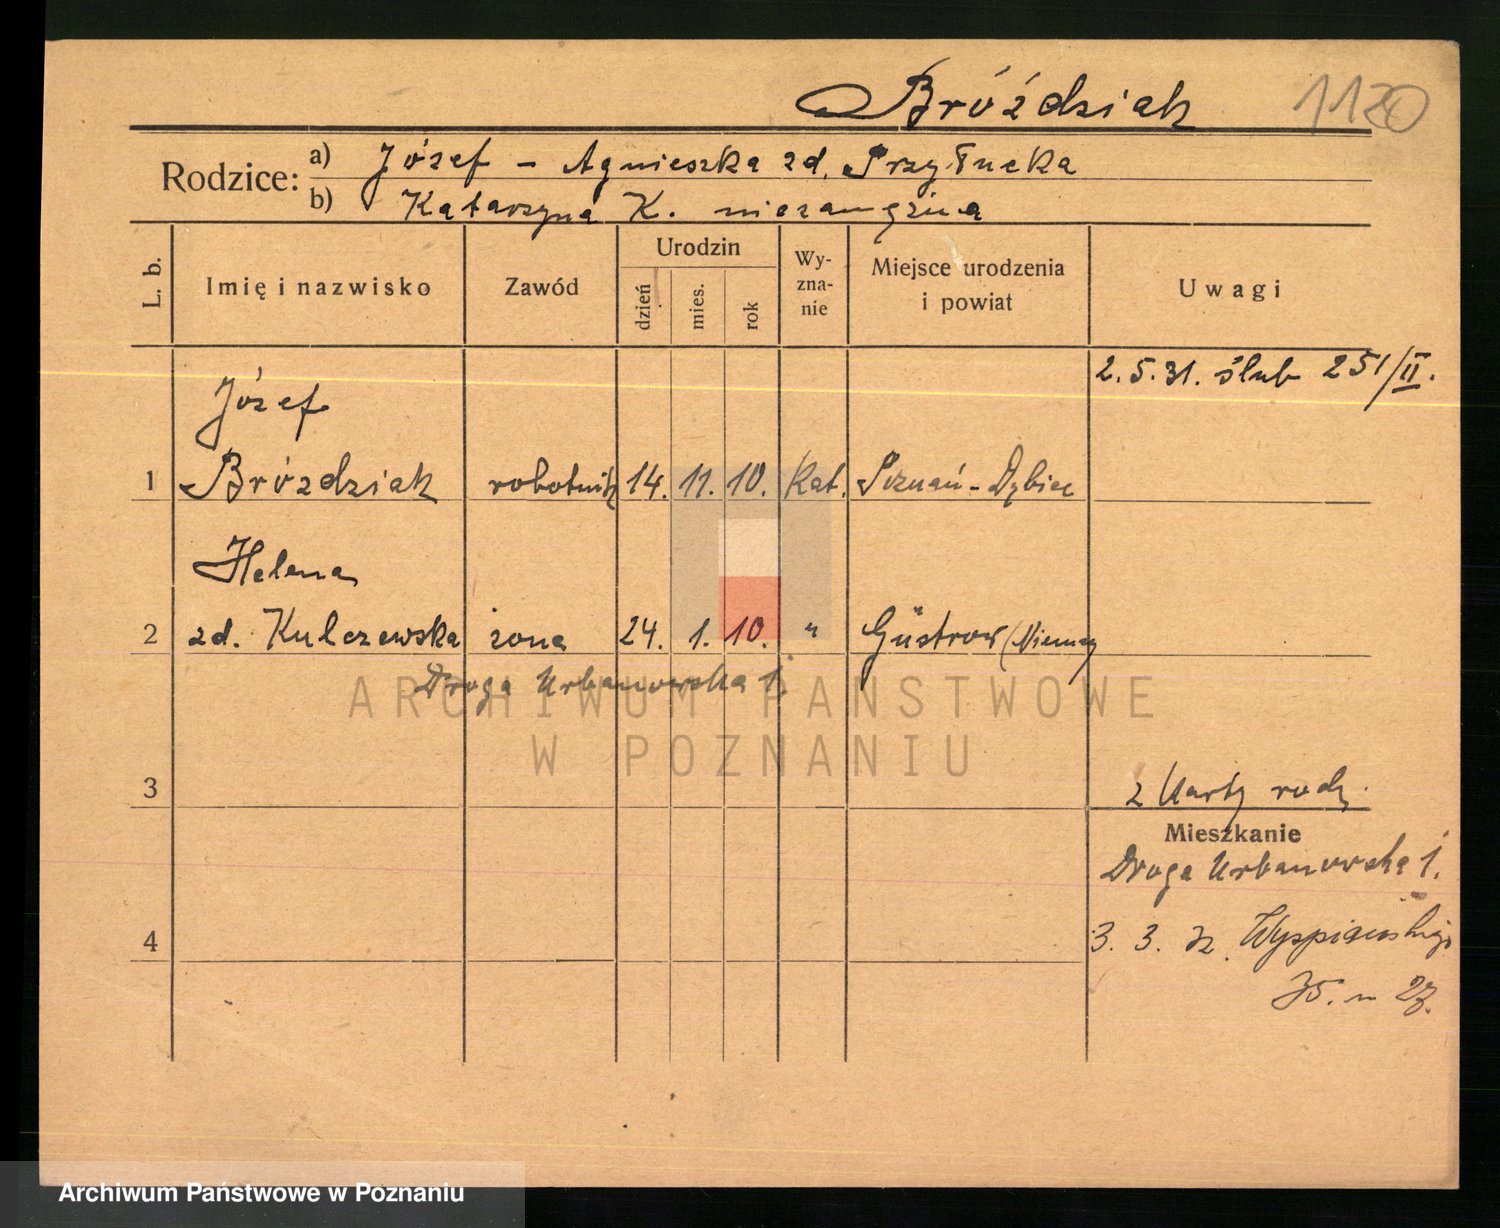 Bróździak 1120
Rodzice: a) Józef - Agnieszka zd. Przyłucka
b) Katarzyna K. niezamężna
L. b. Imię i nazwisko Zawód Urodzin dzień mies. rok Wy-zna-nie Miejsce urodzenia i powiat Uwagi
2.5.31. ślub 251/II.
Józef
1 Bróździak robotnik 14. 11. 10. Kat. Poznań - Dębiec
Helena
2 zd. Kulczewska żona 24. 1. 10. " Güstrow (Niemcy
Droga Urbanowska 1.
ARCHIWUM PAŃSTWOWE
W POZNANIU
3 z Karty rodz.
Mieszkanie
Droga Urbanowska 1.
4 3. 3. 32. Wyspiańskiego
35. m 27.
Archiwum Państwowe w Poznaniu